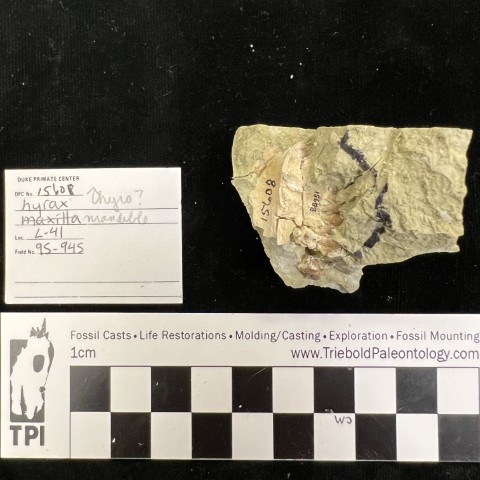 DUKE PRIMATE CENTER
DPC No. 15608
hyrax Thyro?
maxilla mandible
Loc L-41
Field No. 95-945
15608
Fossil Casts • Life Restorations • Molding/Casting • Exploration • Fossil Mounting
1cm www.TrieboldPaleontology.com
TPI